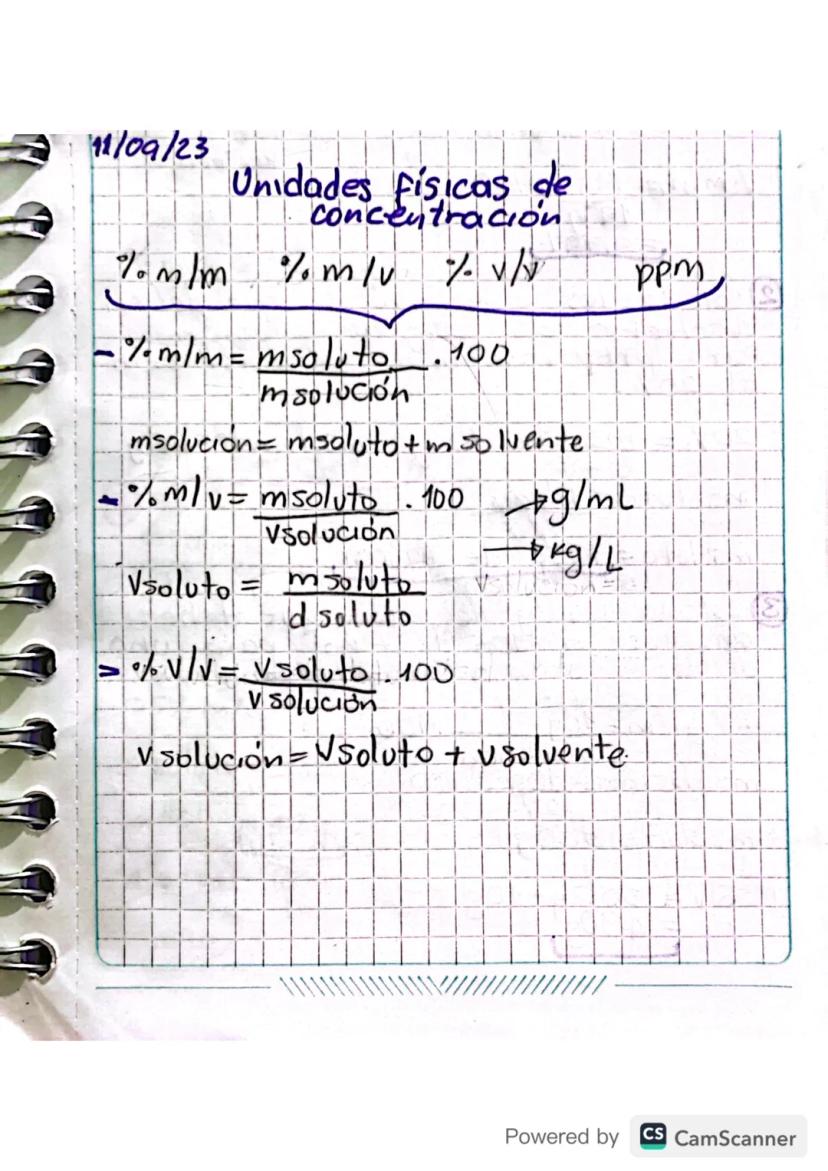 11/09/23
Unidades físicas de
concentración
% m/m % m/v % v/v ppm
- % m/m = msoluto . 100
msolución
msolución = msoluto + msolvente
- % m/v = msoluto . 100 → g/mL
vsolución → kg/L
Vsoluto = msoluto
d soluto
- % v/v = vsoluto . 100
vsolución
vsolución = Vsoluto + vsolvente
Powered by CS CamScanner